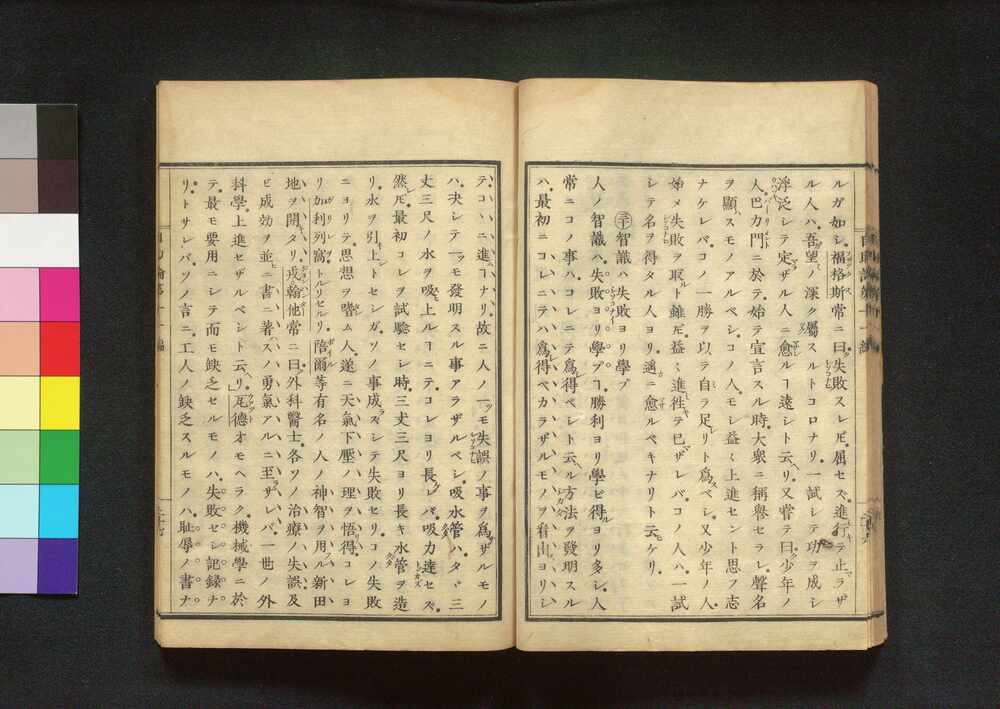 ルガ如シ福格斯常ニ曰失敗スレ𪜈屈セズ進行テ止ラザ
ル人ハ吾望ノ深ク屬スルトコロナリ一試シテ功ヲ成シ
浮泛シテ定ザル人ニ愈ルヿ遠シト云リ又嘗テ曰少年ノ
人巴力門ニ於テ始テ宣言スル時大衆ニ稱譽セラレ聲名
ヲ顯スモノアルベシコノ人モシ益〻上進セント思フ志
ナケレバコノ一勝ヲ以テ自ラ足リト爲スベシ又少年ノ人
始メ失敗ヲ取ルト雖𪜈益〻進徃テ已ザレバコノ人ハ一試
シテ名ヲ得タル人ヨリ遥ニ愈ルベキナリト云ケリ
智識ハ失敗ヨリ學ブ
人ノ智識ハ失敗ヨリ學ブヿ勝利ヨリ學ビ得ルヨリ多シ人
常ニコノ事ハコレニテ爲得ベシト云ル方法ヲ發明スル
ハ最初ニコレニテハ爲得ベカラザルモノヲ看出ヨリシ
テコヽニ進ヿナリ故ニ人ノ一モ失誤ノ事ヲ爲ザルモノ
ハ決シテ一モ發明スル事アラザルベシ吸水管ハタヾ三
丈三尺ノ水ヲ吸上ルヿニテコレヨリ長ケレバ吸力達セズ
然𪜈最初コレヲ試驗セシ時三丈三尺ヨリ長キ水管ヲ造
リ水ヲ引上トセシガソノ事成ズシテ失敗セリコノ失敗
ニヨリテ思想ヲ嗜ム人遂ニ天氣下壓ノ理ヲ悟得コレヨ
リ加利列窩トルリセルリ陪爾等有名ノ人ノ神智ヲ用ル新田
地ヲ開タリ戎翰他常ニ曰外科醫士各ソノ治療ノ失誤及
ビ成効ヲ並ニ書ニ著スノ勇氣アルニ至ザレバ一世ノ外
科學上進セザルベシト云リ瓦德オモヘラク機械學ニ於
テ最モ要用ニシテ而モ缺乏セルモノハ失敗セシ記録ナ
リトサレバソノ言ニ工人ノ缺乏スルモノハ耻辱ノ書ナ